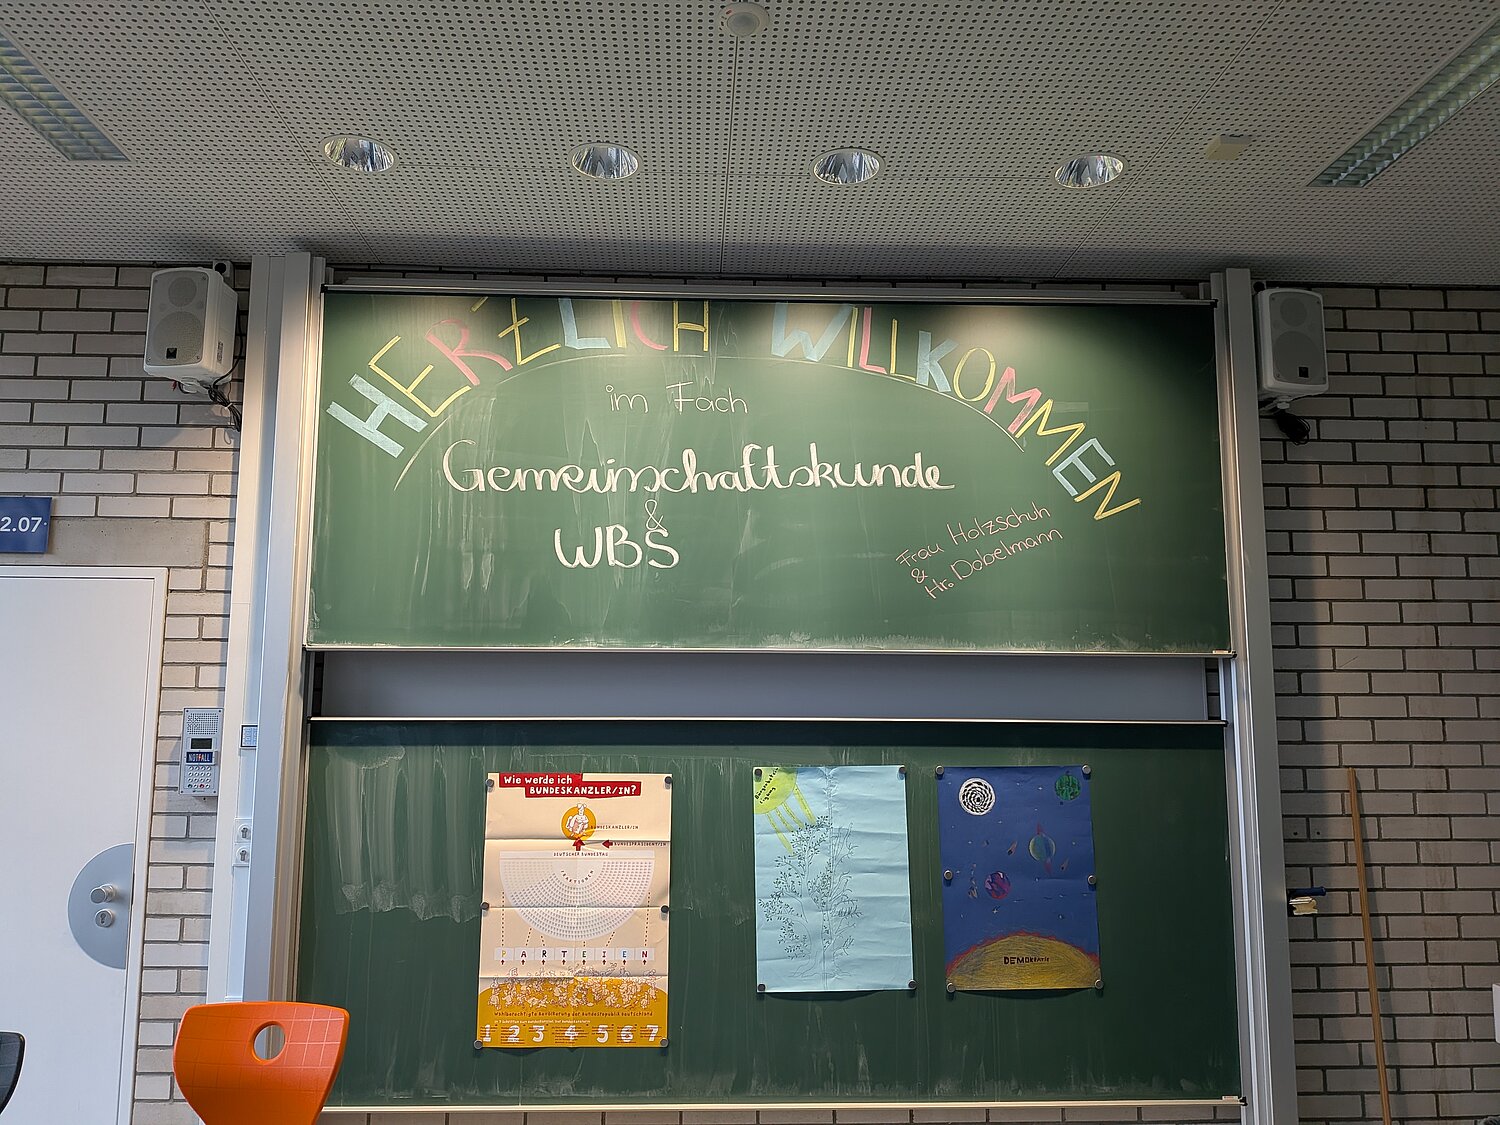 HERZLICH WILLKOMMEN
im Fach
Gemeinschaftskunde
&
WBS
Frau Holzschuh
&
Hr. Dobelmann
2.07
NOTFALL
Wie werde ich
BUNDESKANZLER/IN?
BUNDESKANZLER/IN
BUNDESPRÄSIDENT/IN
DEUTSCHER BUNDESTAG
PARTEIEN
Wahlberechtigte Bevölkerung der Bundesrepublik Deutschland
1 2 3 4 5 6 7
DEMOKRATIE